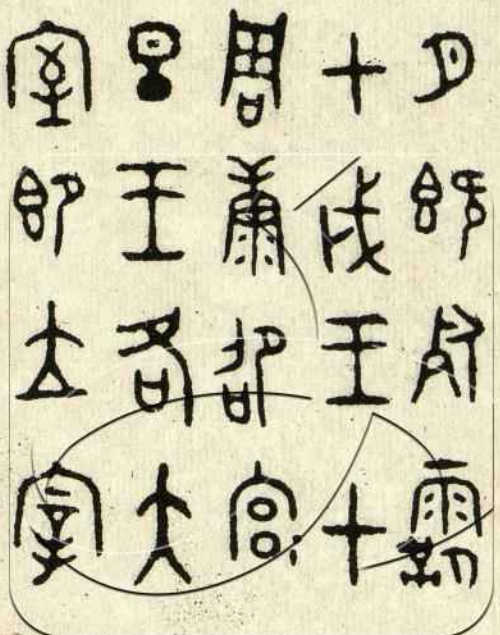 月既死霸
甲戌王才
周康邵宮
旦王各大
室即立宰